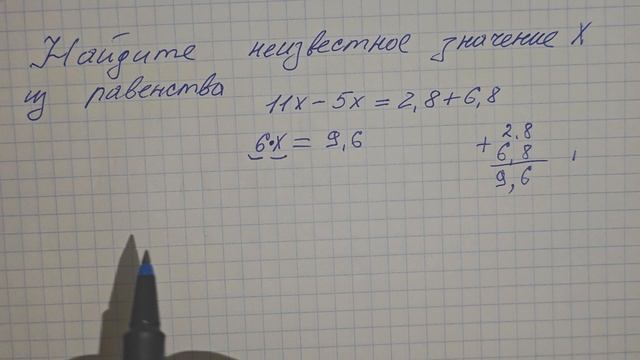 Найдите неизвестное значение X
из равенства
11x - 5x = 2,8 + 6,8
6·x = 9,6
+ 2,8
6,8
9,6